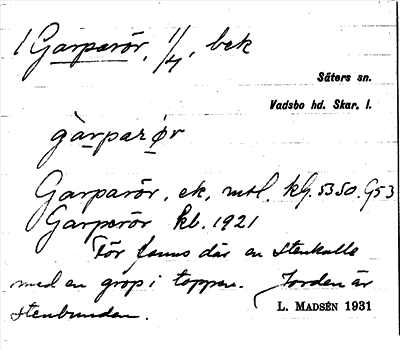 1 Garparör, 1/4, bek
Säters sn.
Vadsbo hd. Skar. l.
gàrparǿr
Garparör, ek, mtl. kG. 5350. G53
Garperör kb. 1921
Förr fanns där en stenkulle
med en grop i toppen. Jorden är
stenbunden.
L. MADSÉN 1931